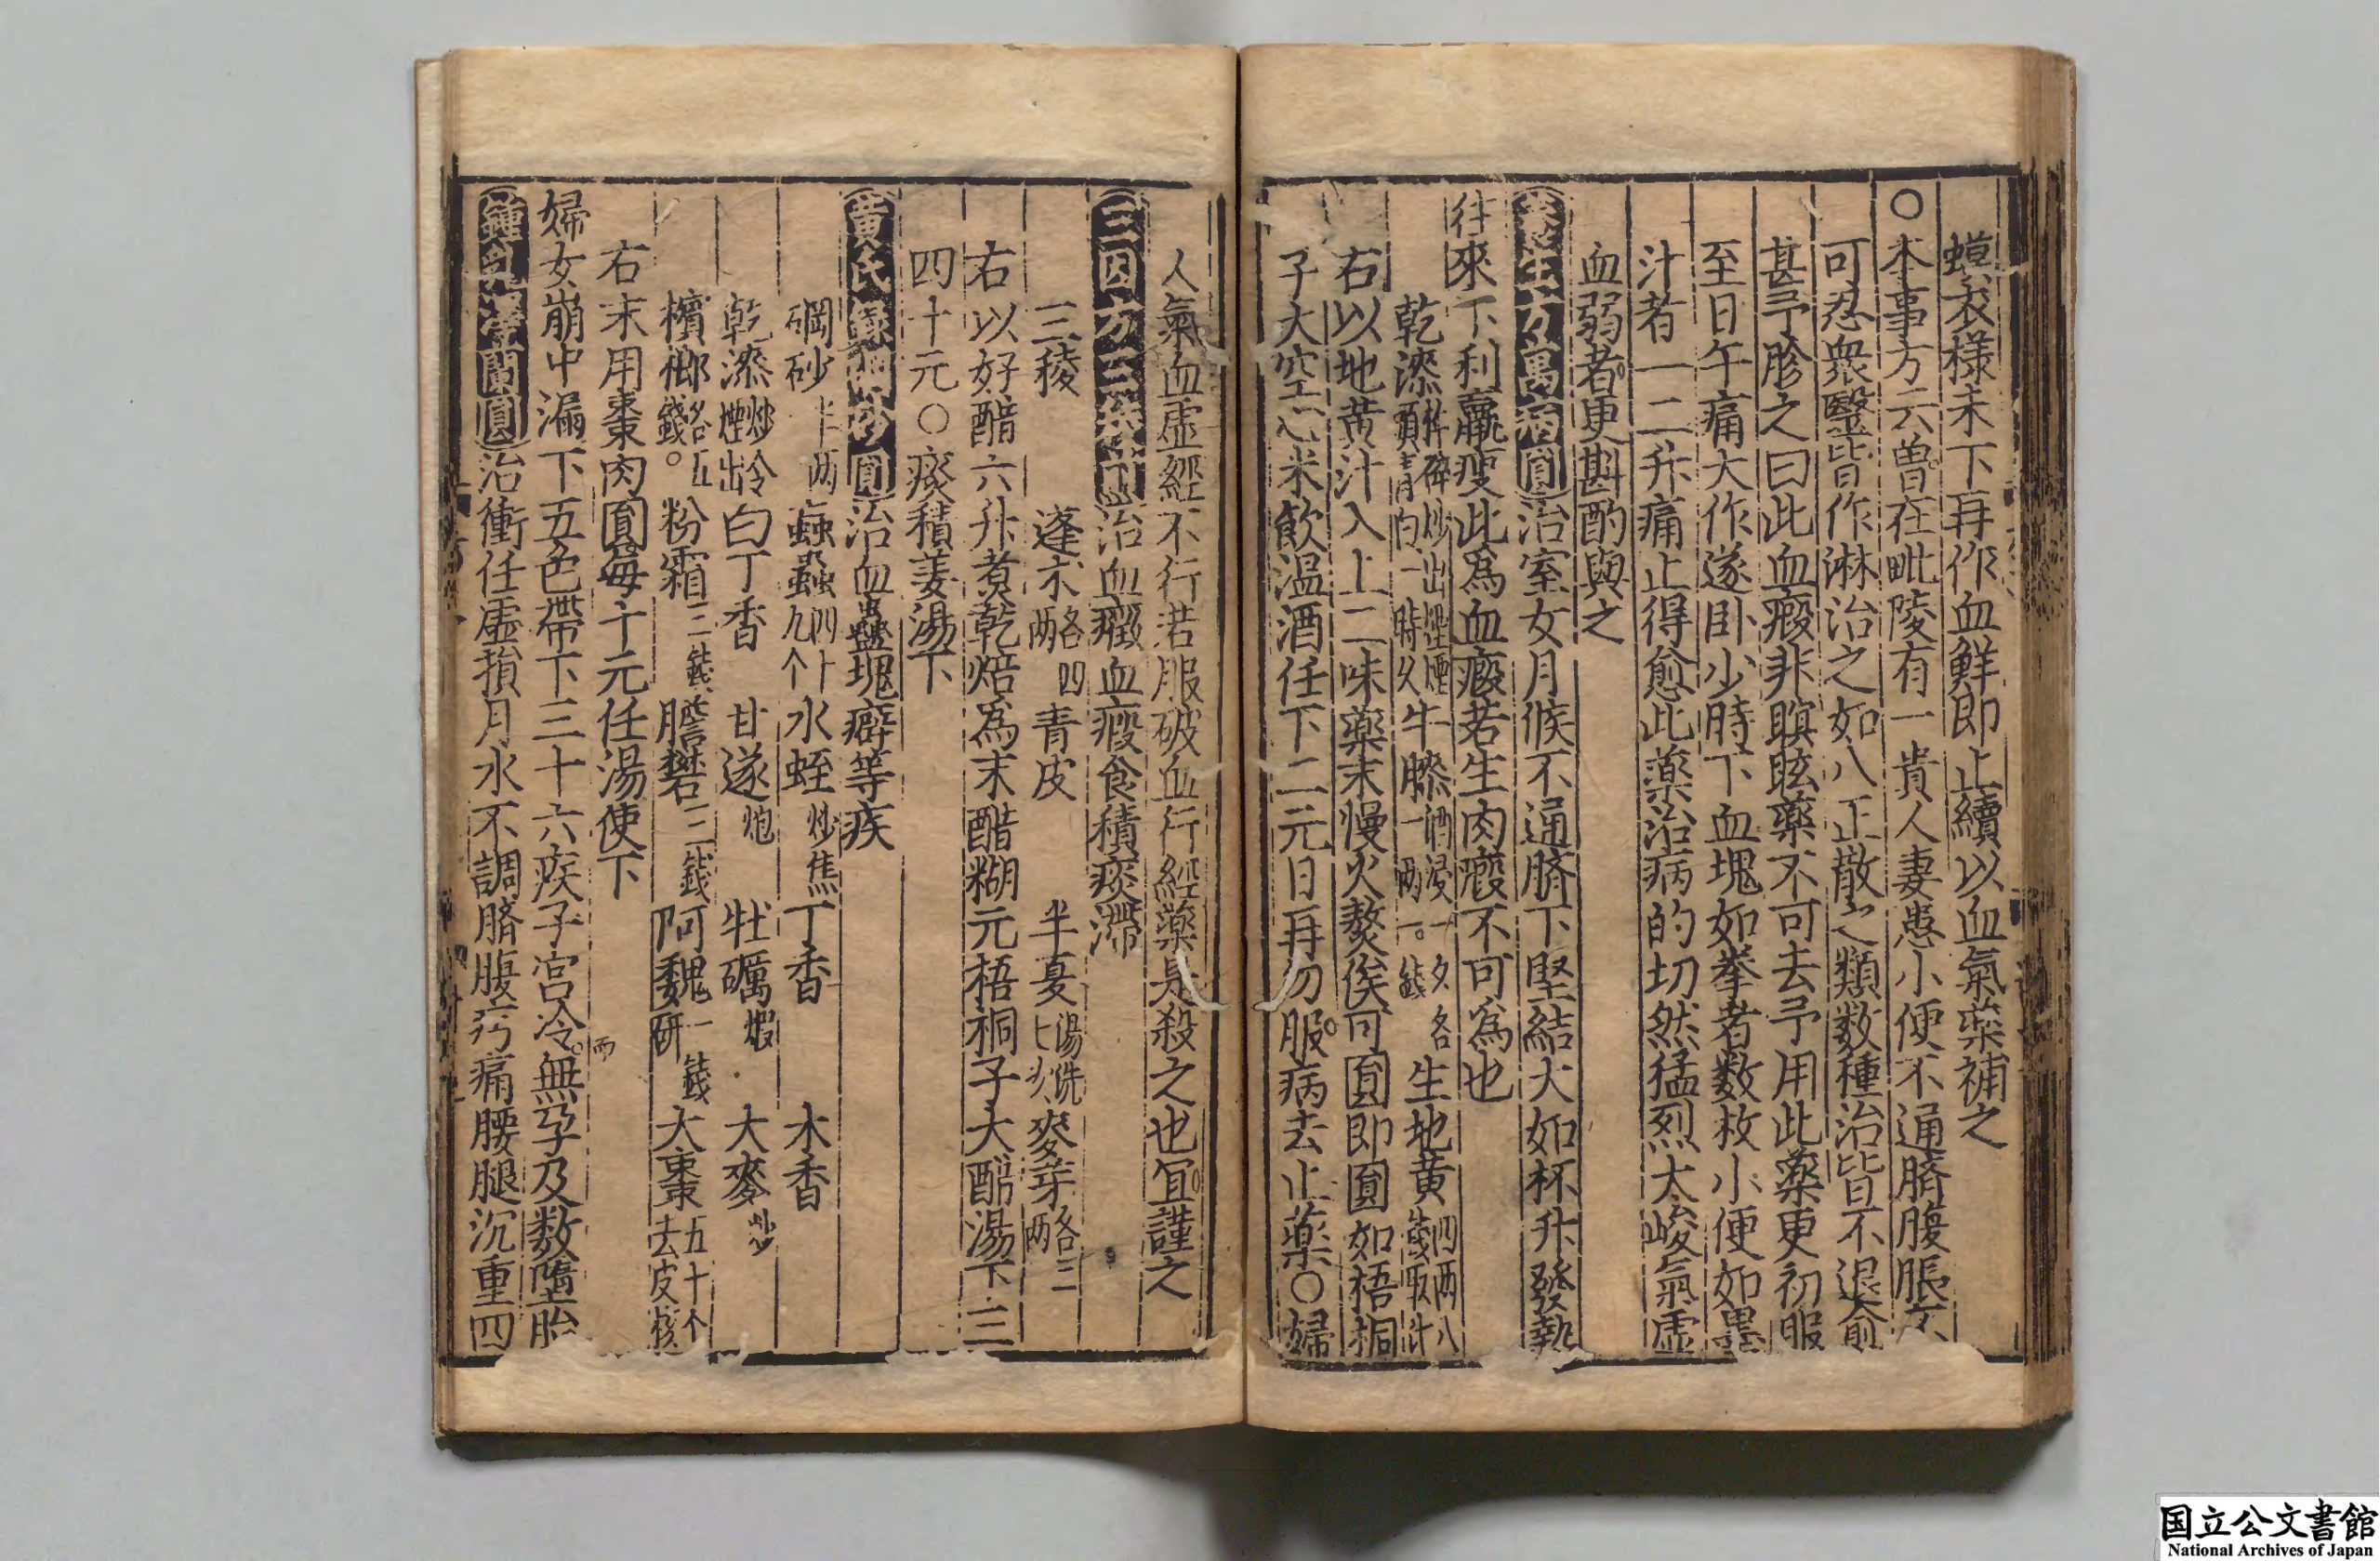 蟆衣樣未下再作血鮮即止續以血氣藥補之
〇本事方云曾在毗陵有一貴人妻患小便不通臍腹脹不
可忍衆醫皆作淋治之如八正散之類数種治皆不退愈
甚予胗之曰此血瘕非瞑眩藥不可去予用此藥更初服
至日午痛大作遂卧少時下血塊如拳者数枚小便如黒
汁者一二升痛止得愈此藥治病的切然猛烈太峻氣虛
血弱者更斟酌與之
養生方萬病圓治室女月候不通臍下堅結大如杯升發熱
往來下利羸瘦此爲血瘕若生肉癥不可爲也
乾漆杵碎炒出煙煙頭青白一時久牛膝酒浸一夕各一兩一錢生地黄四两八錢取汁
右以地黄汁入上二味藥末慢火熬俟可圓即圓如梧桐
子大空心米飲温酒任下二元日再勿服病去止藥〇婦
人氣血虛經不行若服破血行經藥是殺之也宜謹之
三因方三稜圓治血癥血瘕食積痰滯
三稜 蓬朮各四两 青皮 半夏湯洗七次 麥芽各三两
右以好醋六升煮乾焙爲末醋糊元梧桐子大醋湯下三
四十元〇痰積姜湯下
黄氏碙砂圓治血蠱塊癖等疾
碙砂半两 蝱蟲四十九个 水蛭炒焦 丁香 木香
乾漆炒令煙出 白丁香 甘遂炮 牡礪煆 大麥炒
檳榔各五錢 粉霜三錢 膽礬三錢 阿魏一錢研 大棗五十个去皮核
右末用棗肉圓每十元任湯使下
婦女崩中漏下五色帶下三十六疾子宫冷無孕及数墮胎
鍾乳澤蘭圓治衝任虛損月水不調臍腹㽲痛腰腿沉重四
国立公文書館
National Archives of Japan